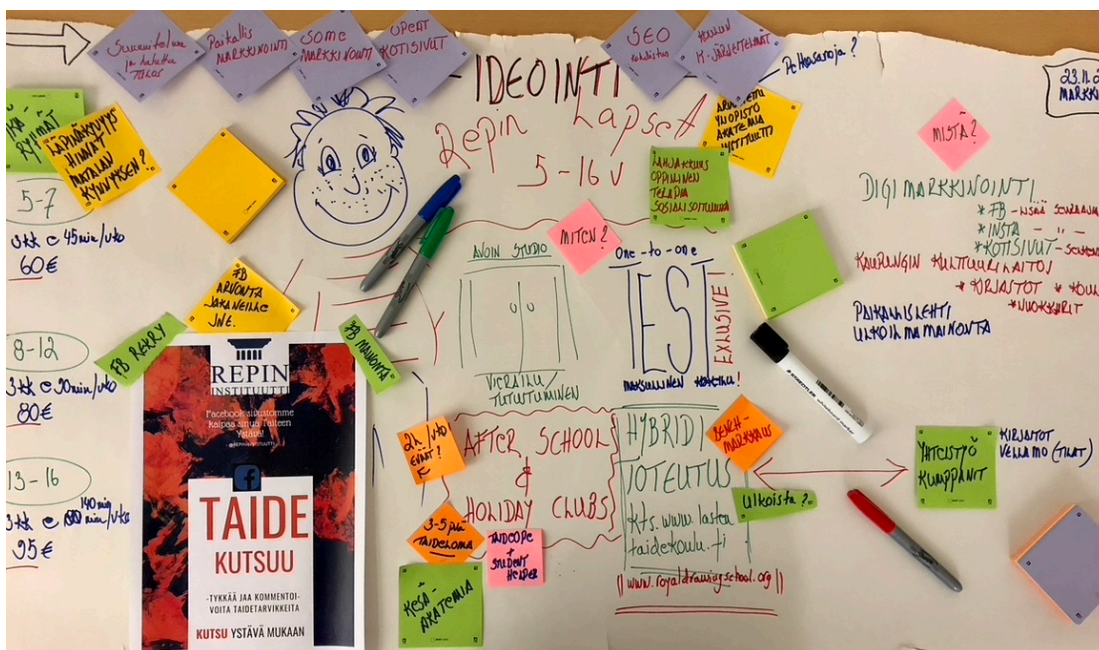 Suunnitelma
ja haluttu
TULOS
Paikallis
MARKKINOINTI
SOME
MARKKINOINTI
UPEAT
KOTISIVUT
SEO
K-JÄRJESTELMÄT
-IDEOINTI
Repin Lapset
5-16 v
23.11.2
MARKKI
RYHMÄT
LÄPINÄKYVYYS
HINNAT
MATALAN
KYNNYKSEN?
YLIOPISTO
AKATEMIA
INSTITUUTTI
LAHJAKKUUS
OPPIMINEN
TERAPIA
SOSIALISOITUMINEN
MISTÄ?
DIGIMARKKINOINTI
*FB - LISÄÄ SEURAAJIA
*INSTA - " -
*KOTISIVUT -
KAUPUNGIN KULTTUURILAITOS
*KIRJASTOT *KOUL
*NUOKKARIT
PAIKALLISLEHTI
ULKOILMAMAINONTA
5-7
3kk e 45min/vko
60€
8-12
3kk e 90min/vko
80€
13-16
140 min
95€
FB
ARVONTA
JAKANEILLE
JNE.
FB REKRY
FB MAINONTA
MITEN?
AVOIN STUDIO
VIERAILU/
TUTUSTUMINEN
One-to-one
TEST
EXLUSIVE!
MAKSULLINEN KOKEILU!
REPIN
INSTITUUTTI
Facebook sivustomme
kaipaa sinua Taiteen
Ystävä!
TAIDE
KUTSUU
-TYKKÄÄ JAA KOMMENTOI-
VOITA TAIDETARVIKKEITA
KUTSU YSTÄVÄ MUKAAN
2h/vko
EVÄÄT?
AFTER SCHOOL
&
HOLIDAY CLUBS
3-5 pvä
TAIDELOMA
TAIDEOPE
+
STUDENT
HELPER
KESÄ-
AKATEMIA
HYBRIDI
TOTEUTUS
kts. www.lasten
taidekoulu.fi
||www.royaldrawingschool.org||
BENCH-
MARKKAUS
Ulkoista?
YHTEISTYÖ
KUMPPANIT
KIRJASTOT
VELLAMO (TILAT)